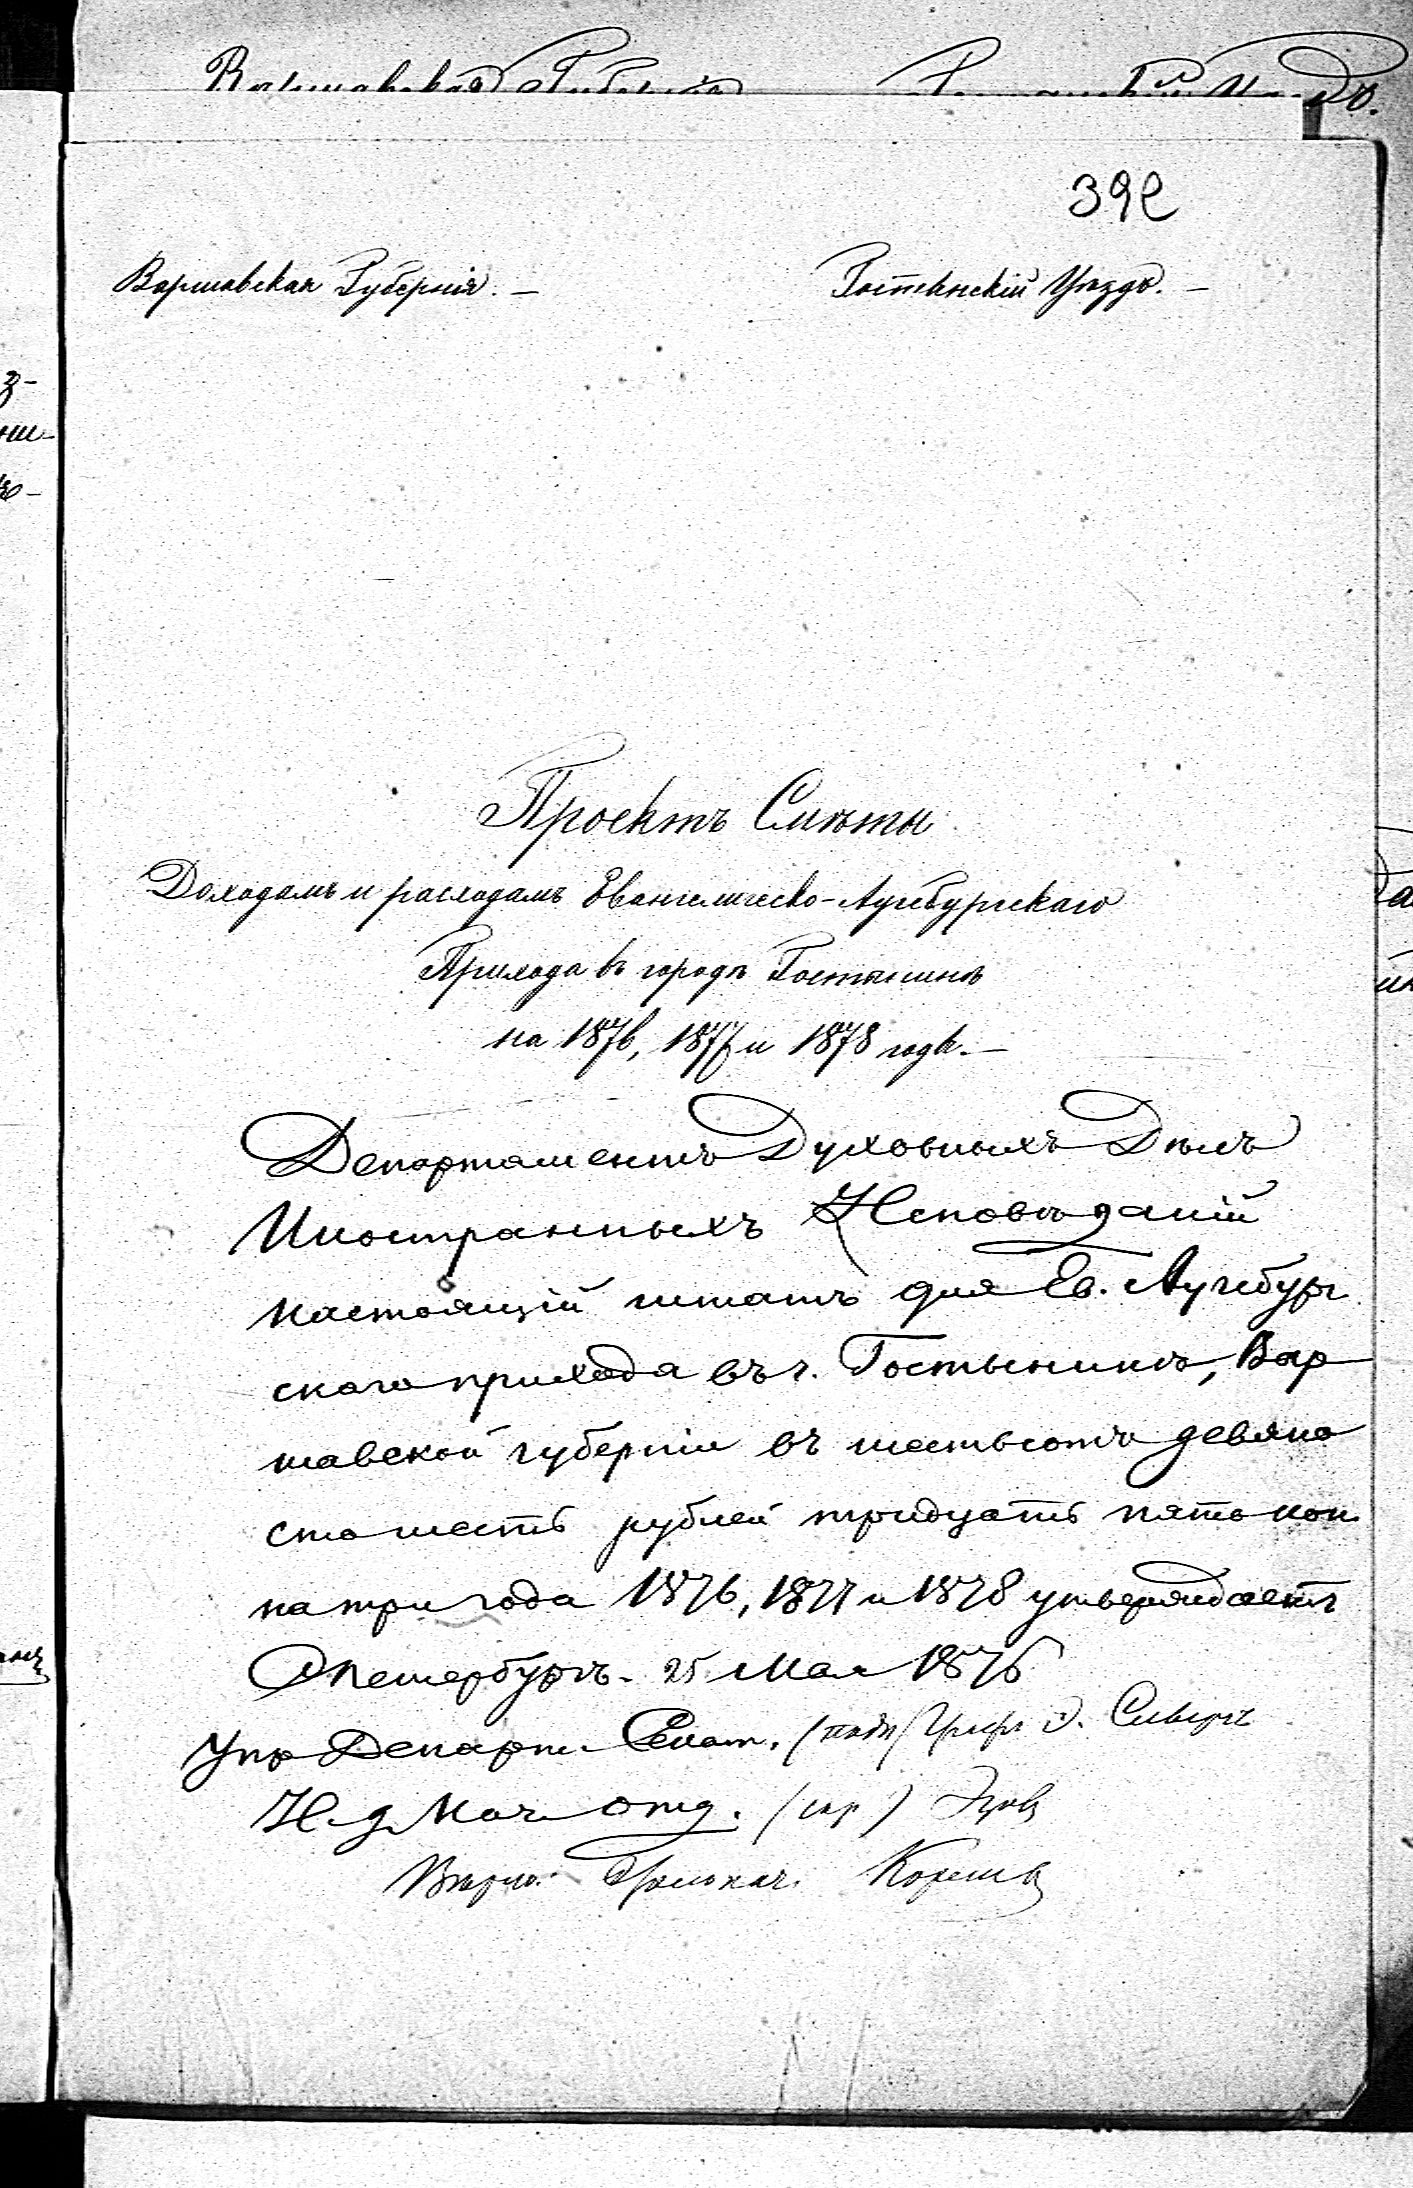 Варшавская Губернія
392
Варшавская Губернія. —
Гостынскій Уѣздъ. —
Проектъ Смѣты
Доходамъ и расходамъ Евангелическо-Аугсбургскаго
Прихода въ городѣ Гостынинѣ
на 1876, 1877 и 1878 годы. —
Департаментъ Духовныхъ Дѣлъ
Иностранныхъ Исповѣданій
настоящій штатъ для Ев. Аугсбург
скаго прихода въ г. Гостынинѣ, Вар
шавской губерніи въ шестьсотъ девяно
сто шесть рублей тридцать пять коп.
на три года 1876, 1877 и 1878 утверждаетъ
Петербургъ. 25 Мая 1876
Упр Департ. (подп) Графъ Сиверсъ
И. д. Нач. Отд.
Вѣрно: